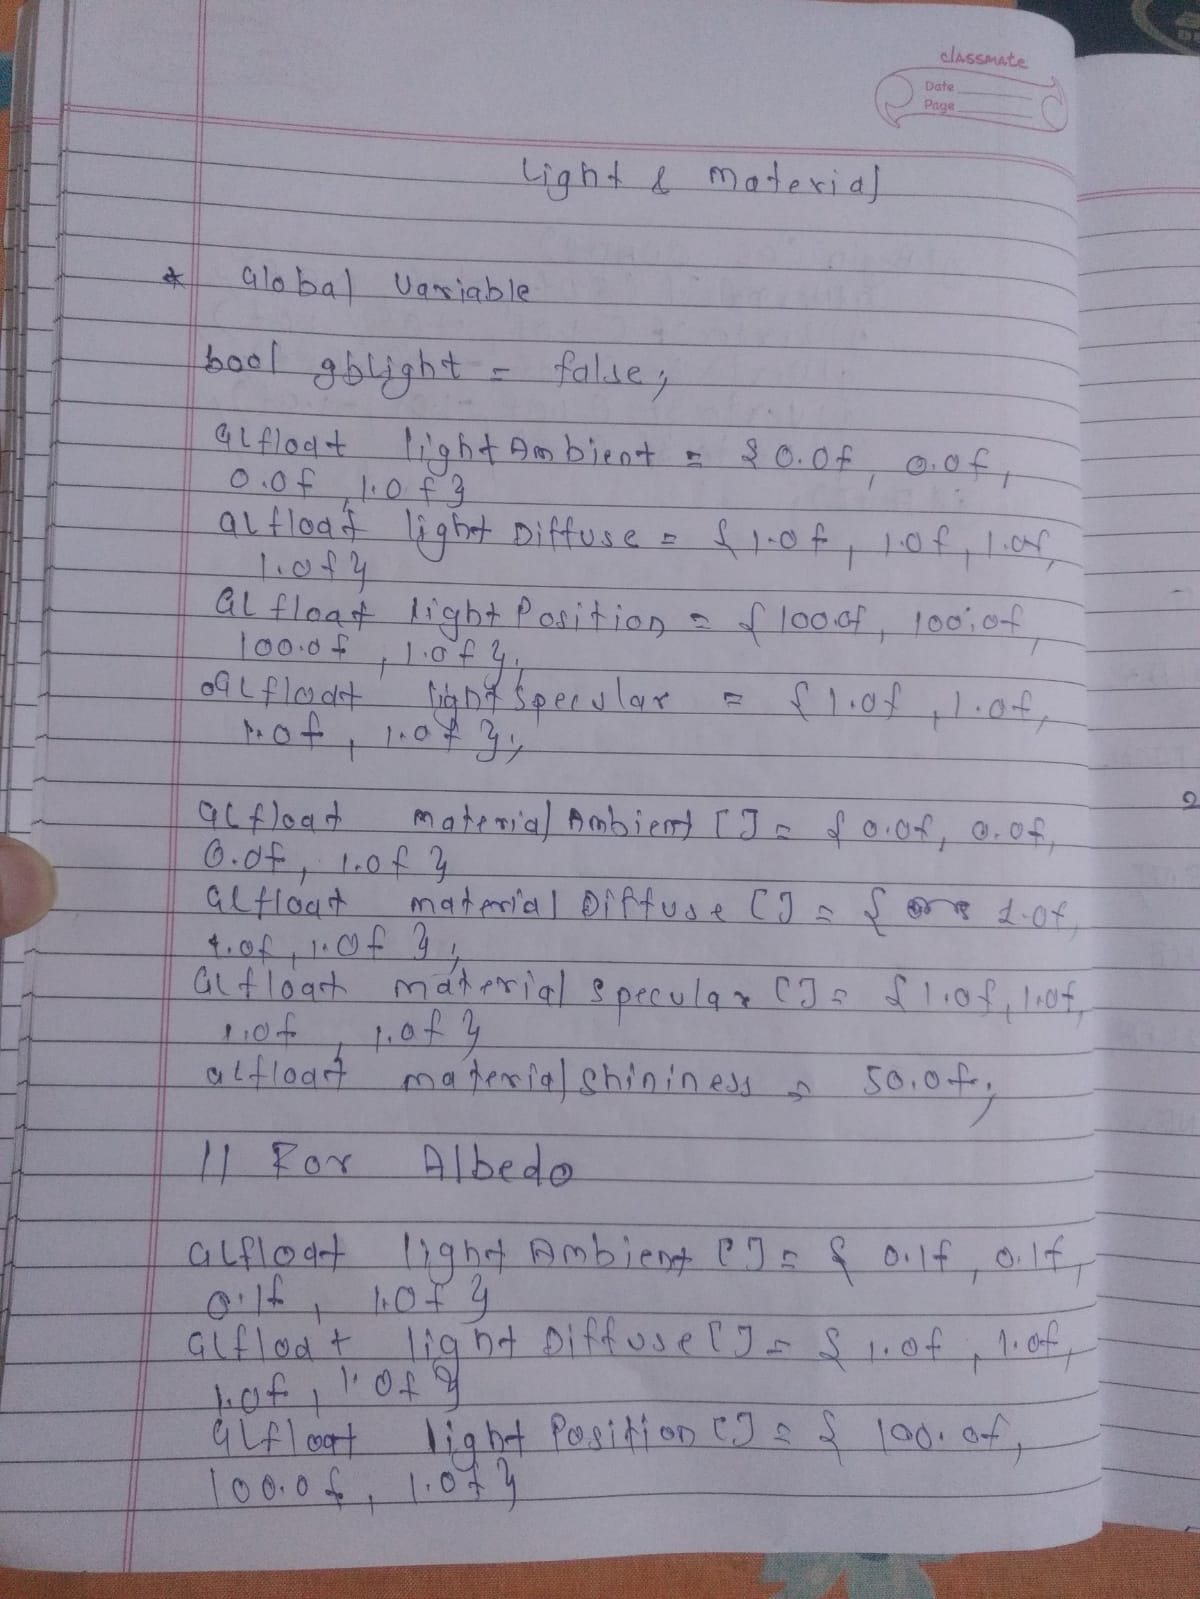 classmate
Date
Page
Light & Material
* Global Variable
bool gbLight = false;
GLfloat lightAmbient = { 0.0f, 0.0f,
0.0f, 1.0f }
GLfloat lightDiffuse = { 1.0f, 1.0f, 1.0f,
1.0f }
GLfloat lightPosition = { 100.0f, 100.0f,
100.0f, 1.0f };
GLfloat lightSpecular = { 1.0f, 1.0f,
1.0f, 1.0f };
GLfloat materialAmbient [] = { 0.0f, 0.0f,
0.0f, 1.0f }
GLfloat materialDiffuse [] = { 1.0f,
1.0f, 1.0f };
GLfloat materialSpecular [] = { 1.0f, 1.0f,
1.0f, 1.0f }
GLfloat materialShininess = 50.0f;
// For Albedo
GLfloat lightAmbient [] = { 0.1f, 0.1f,
0.1f, 1.0f }
GLfloat lightDiffuse [] = { 1.0f, 1.0f,
1.0f, 1.0f }
GLfloat lightPosition [] = { 100.0f,
100.0f, 1.0f }